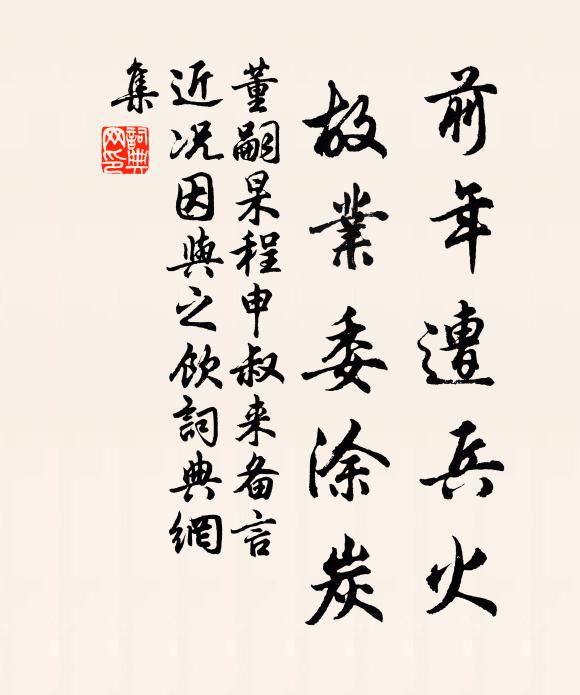 前年遭兵火
故業委涂炭
董嗣杲程申叔来备言
近况因與之飲詞典網
集
詞典
网印